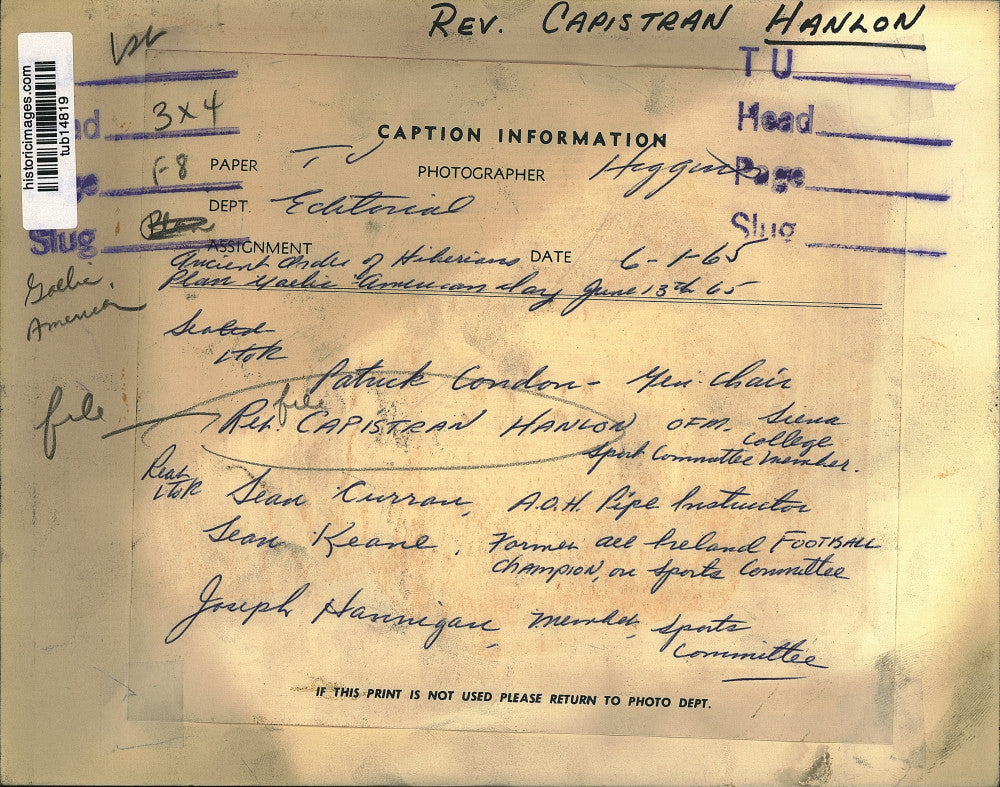 REV. CAPISTRAN HANLON
historicimages.com
tub14819
TU
3 x 4
Head
CAPTION INFORMATION
F-8
PAPER TU
PHOTOGRAPHER Higgins
Page
DEPT. Editorial
Slug
Slug
ASSIGNMENT
Ancient Order of Hiberians
DATE 6-1-65
Plan Gaelic American day June 13th 65
Gaelic,
America
Seated
L to R
Patrick Condon - Gen Chair
file
file
Rev. CAPISTRAN HANLON OFM. Siena
College
Sport Committee member.
Rear
L to R
Sean Curran, A.O.H. Pipe Instructor
Sean Keane, Former all Ireland FOOTBALL
CHAMPION, on Sports Committee
Joseph Hannigan, member, Sports
Committee
IF THIS PRINT IS NOT USED PLEASE RETURN TO PHOTO DEPT.